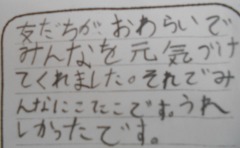 友だちが おわらいで
みんなを元気づけ
てくれました。それでみ
んなにこたこです。うれ
しかったです。